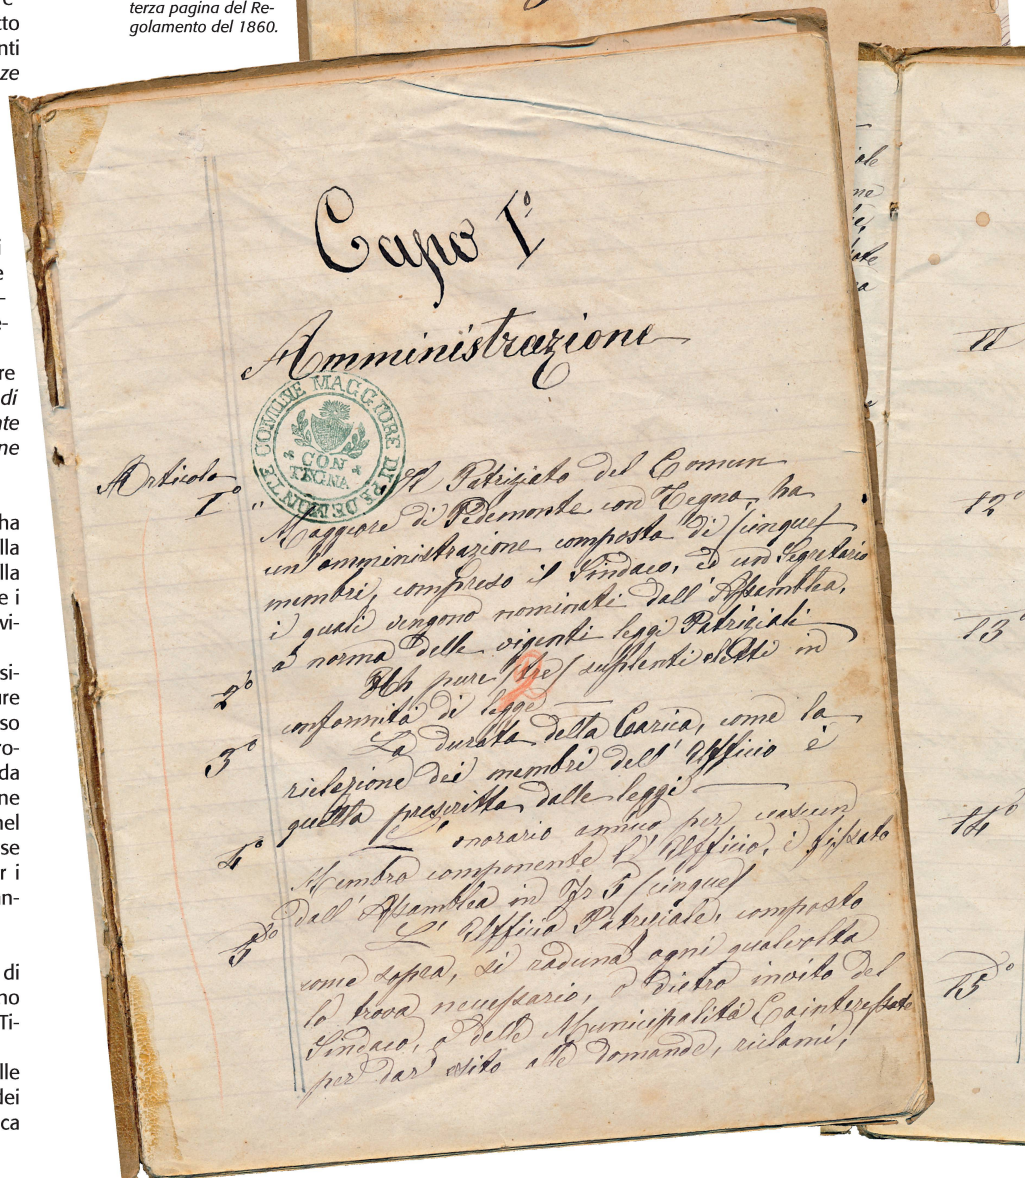 terza pagina del Re-
golamento del 1860.
Capo I.º
Amministrazione
COMUNE MAGGIORE DI PEDEMONTE
CON
TEGNA
Articolo
1º " Il Patriziato del Comun
Maggiore di Pedemonte con Tegna, ha
un'amministrazione composta di (cinque)
membri, compreso il Sindaco, ed un Segretario
i quali vengono nominati dall'Assemblea,
a norma delle vigenti leggi Patriziali
2º pure (tre) suplenti eletti in
conformità di legge
3º La durata della Carica, come la
rielezione dei membri dell'Ufficio è
quella prescritta dalle leggi
4º L'onorario annuo per ciascun
Membro componente l'Ufficio, è fissato
dall'Assemblea in Fr 5 (cinque)
5º L'Ufficio Patriziale, composto
come sopra, si raduna ogni qualvolta
lo trova necessario, o dietro invito del
Sindaco, o delle Municipalità Cointeressate
per dar esito alle domande, riclami,
11
12º
13º
14º
15º
etto
nti
ze
re
di
nte
ne
ha
lla
lla
e i
vi-
si-
ure
so
ro-
da
ne
nel
se
r i
un-
di
no
Ti-
lle
dei
ca